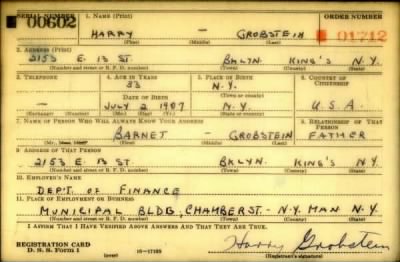 SERIAL NUMBER 1. NAME (Print) ORDER NUMBER
00602 HARRY — GROBSTEIN 01712
(First) (Middle) (Last)
2. ADDRESS (Print)
2153 E. 13 ST. BKLYN. KING'S N.Y.
(Number and street or R. F. D. number) (Town) (County) (State)
3. TELEPHONE 4. AGE IN YEARS 5. PLACE OF BIRTH 6. COUNTRY OF CITIZENSHIP
33 N.Y.
DATE OF BIRTH (Town or county)
— JULY 2 1907 N.Y. U.S.A.
(Exchange) (Number) (Mo.) (Day) (Yr.) (State or country)
7. NAME OF PERSON WHO WILL ALWAYS KNOW YOUR ADDRESS 8. RELATIONSHIP OF THAT PERSON
BARNET — GROBSTEIN FATHER
(Mr., Mrs., Miss) (First) (Middle) (Last)
9. ADDRESS OF THAT PERSON
2153 E. 13 ST. BKLYN. KING'S N.Y.
(Number and street or R. F. D. number) (Town) (County) (State)
10. EMPLOYER'S NAME
DEPT. OF FINANCE
11. PLACE OF EMPLOYMENT OR BUSINESS
MUNICIPAL BLDG, CHAMBER ST. - N.Y. MAN N.Y.
(Number and street or R. F. D. number) (Town) (County) (State)
I AFFIRM THAT I HAVE VERIFIED ABOVE ANSWERS AND THAT THEY ARE TRUE.
REGISTRATION CARD Harry Grobstein
D. S. S. Form 1 (over) 16—17105 (Registrant's signature)